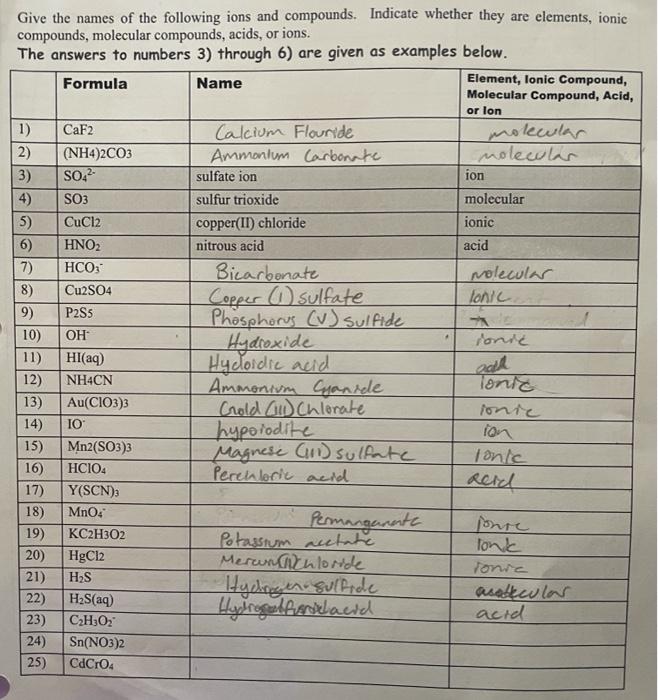 Give the names of the following ions and compounds. Indicate whether they are elements, ionic
compounds, molecular compounds, acids, or ions.
The answers to numbers 3) through 6) are given as examples below.
Formula Name Element, Ionic Compound,
Molecular Compound, Acid,
or Ion
1) CaF2 Calcium Flouride molecular
2) (NH4)2CO3 Ammonium Carbonate molecular
3) SO₄²⁻ sulfate ion ion
4) SO3 sulfur trioxide molecular
5) CuCl2 copper(II) chloride ionic
6) HNO₂ nitrous acid acid
7) HCO₃⁻ Bicarbonate molecular
8) Cu2SO4 Copper (I) sulfate Ionic
9) P2S5 Phosphorus (V) sulfide
10) OH⁻ Hydroxide ionic
11) HI(aq) acid
12) NH4CN Ammonium Cyanide Ionic
13) Au(ClO3)3 Gold (III) Chlorate ionic
14) IO⁻ hypoiodite ion
15) Mn2(SO3)3 (III) sulfate Ionic
16) HClO₄ Perchloric acid acid
17) Y(SCN)₃
18) MnO₄⁻ Permanganate ionic
19) KC2H3O2 Potassium acetate Ionic
20) HgCl2 ionic
21) H₂S Hydrogen sulfide
22) H₂S(aq) acid
23) C₂H₃O₂⁻
24) Sn(NO3)2
25) CdCrO₄